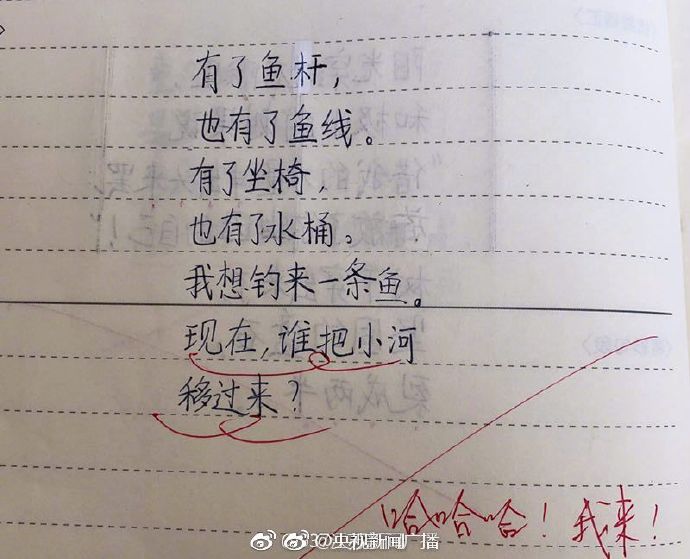 有了鱼杆，
也有了鱼线。
有了坐椅，
也有了水桶。
我想钓来一条鱼。
现在，谁把小河
移过来？
哈哈哈！我来！
@央视新闻广播